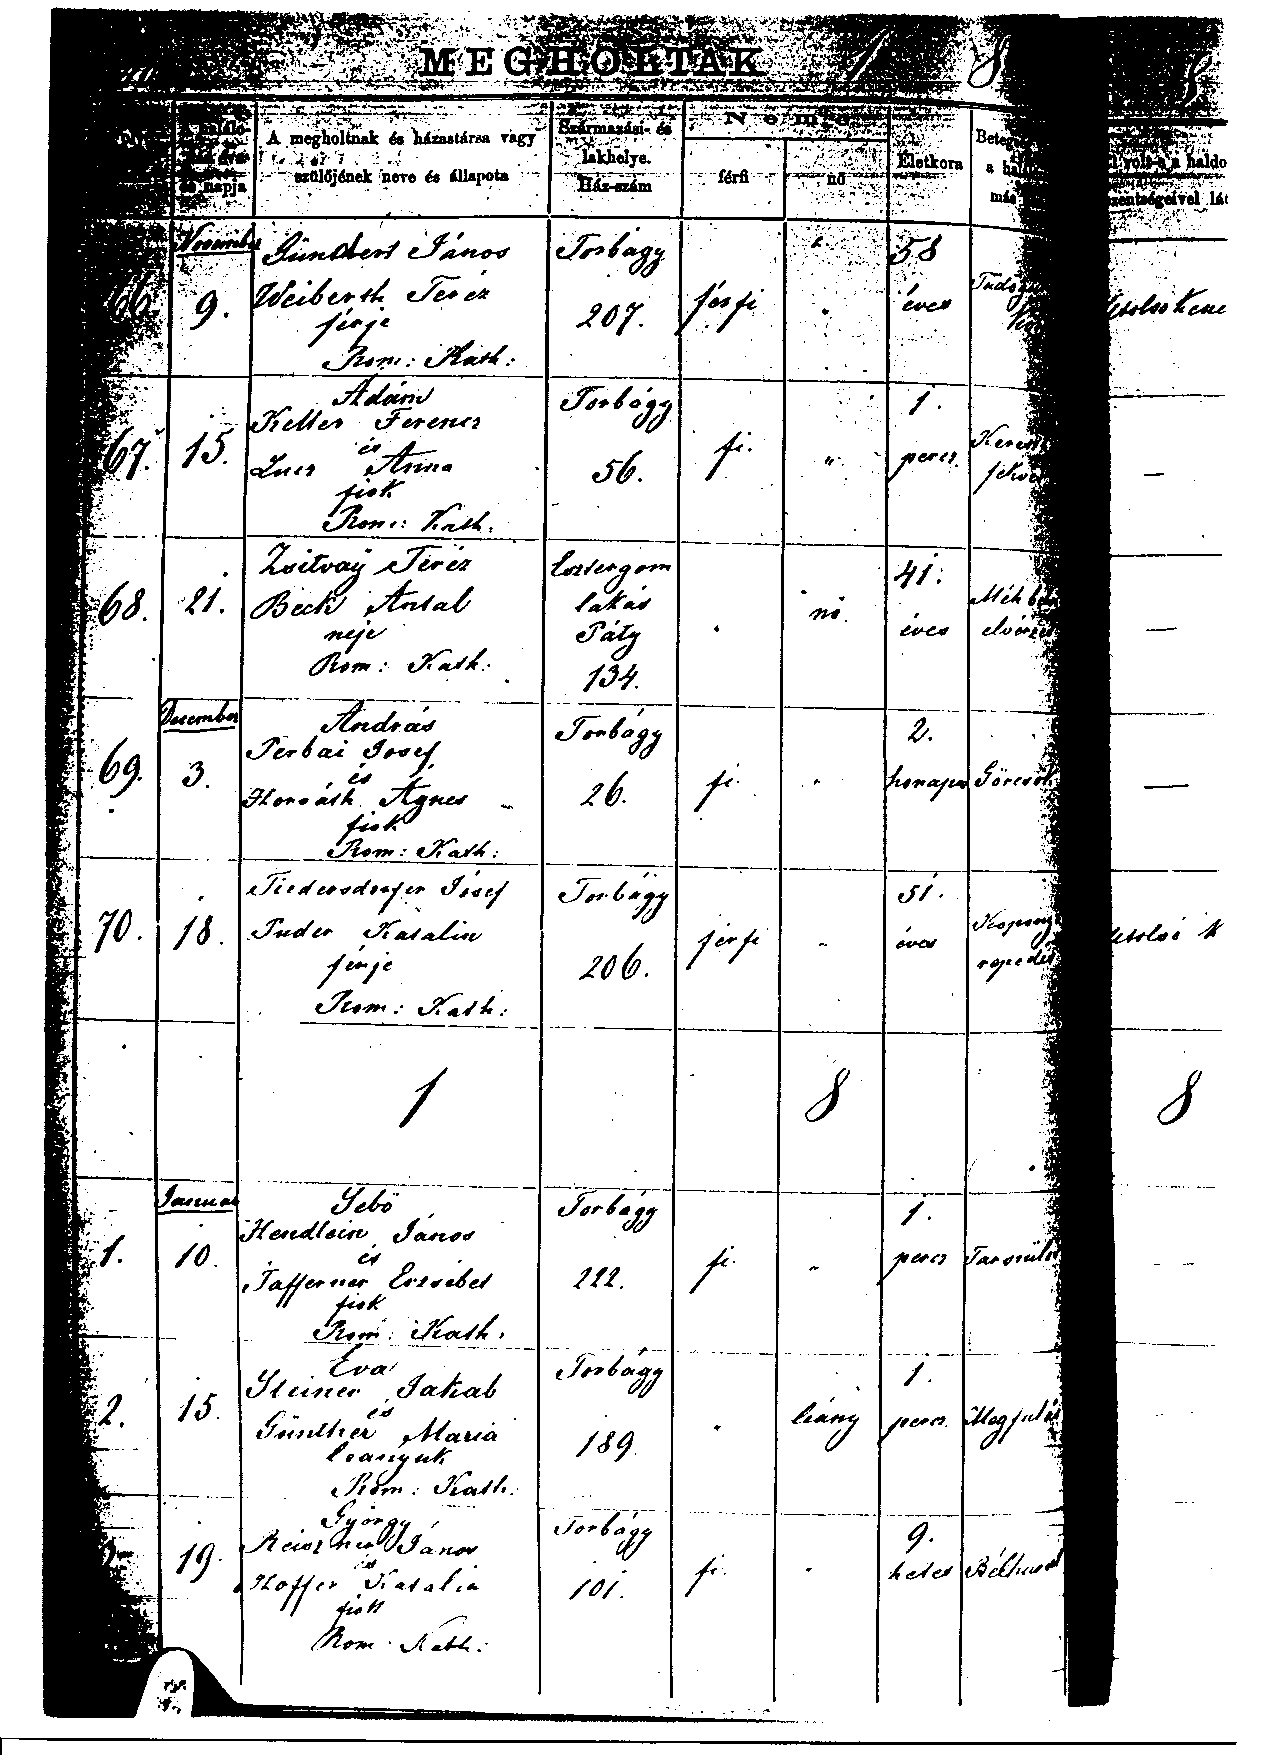 MEGHOLTAK 1 8 8
A megholtnak és házastársa vagy
szülőjének neve és állapota
Származási- és
lakhelye.
Ház-szám
Neme
férfi
nő
Életkora
a halál
más
és napja
volt-e a haldo
szentségeivel lát
66. November 9.
Günthert János
Weiberth Teréz
férje
Rom: Kath:
Torbágy
207.
férfi
"
58
éves
67. 15.
Ádám
Keller Ferencz
és
Anna
fiok
Rom: Kath.
Torbágy
56.
fi.
"
1.
percz.
—
68. 21.
Zsitvay Teréz
Beck Antal
neje
Rom: Kath:
Esztergom
lakás
Páty
134.
nő.
41.
éves
—
69. December 3.
András
Perbai Josef
és
Horváth Ágnes
fiok
Rom: Kath:
Torbágy
26.
fi.
"
2.
honapos
Görcsök
—
70. 18.
Tiedersdorfer Jósef
Tuder Katalin
férje
Rom: Kath:
Torbágy
206.
férfi
"
51.
éves
repedés
1 8 8
1. Januar 10.
Sebő
Hendlein János
és
Tafferner Erzsébet
fiok
Rom: Kath.
Torbágy
222.
fi.
"
1.
percz
2. 15.
Éva
Steiner Jakab
és
Günther Maria
leanyuk
Rom: Kath:
Torbágy
189.
"
leány
1.
percz
19.
György
János
és
Hoffer Katalin
fiok
Rom. Kath:
Torbágy
101.
fi.
"
9.
hetes